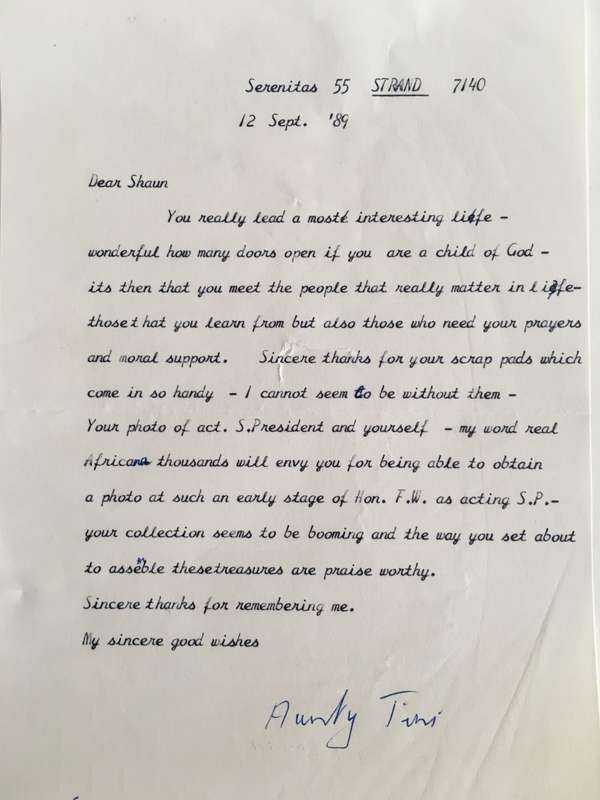 Serenitas 55 STRAND 7140
12 Sept. '89
Dear Shaun
You really lead a most interesting life -
wonderful how many doors open if you are a child of God -
its then that you meet the people that really matter in life-
those t hat you learn from but also those who need your prayers
and moral support. Sincere thanks for your scrap pads which
come in so handy - I cannot seem to be without them -
Your photo of act. S.President and yourself - my word real
African thousands will envy you for being able to obtain
a photo at such an early stage of Hon. F.W. as acting S.P.-
your collection seems to be booming and the way you set about
to assemble thesetreasures are praise worthy.
Sincere thanks for remembering me.
My sincere good wishes
Aunty Tini